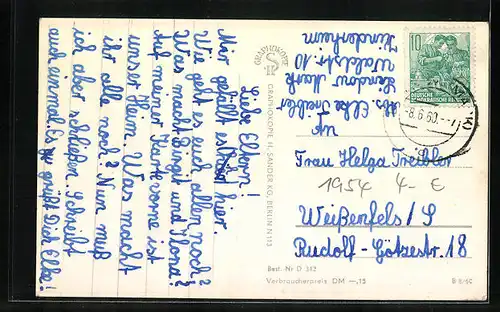 Liebe Eltern!
Mir gefällt es hier.
Wie geht es euch allen noch?
Was macht Birgit und Ilona?
Auf meiner Karte vorne ist
unser Heim. Was macht
ihr alle noch? Nun muß
ich aber schließen. Schreibt
auch einmal. Es grüßt Dich Elke!
GRAPHOKOPIE
GRAPHOKOPIE H. SANDER KG, BERLIN N 113
Abs. Elke Treibler
Mark
Waldstr. 10
Kinderheim
10
DEUTSCHE
DEMOKRATISCHE REPUBLIK
-8.6.60.--7
An
Frau Helga Treibler
1954 4-€
Weißenfels/S
Rudolf-Götzestr. 18
Best.-Nr. D 382
Verbraucherpreis DM -,15